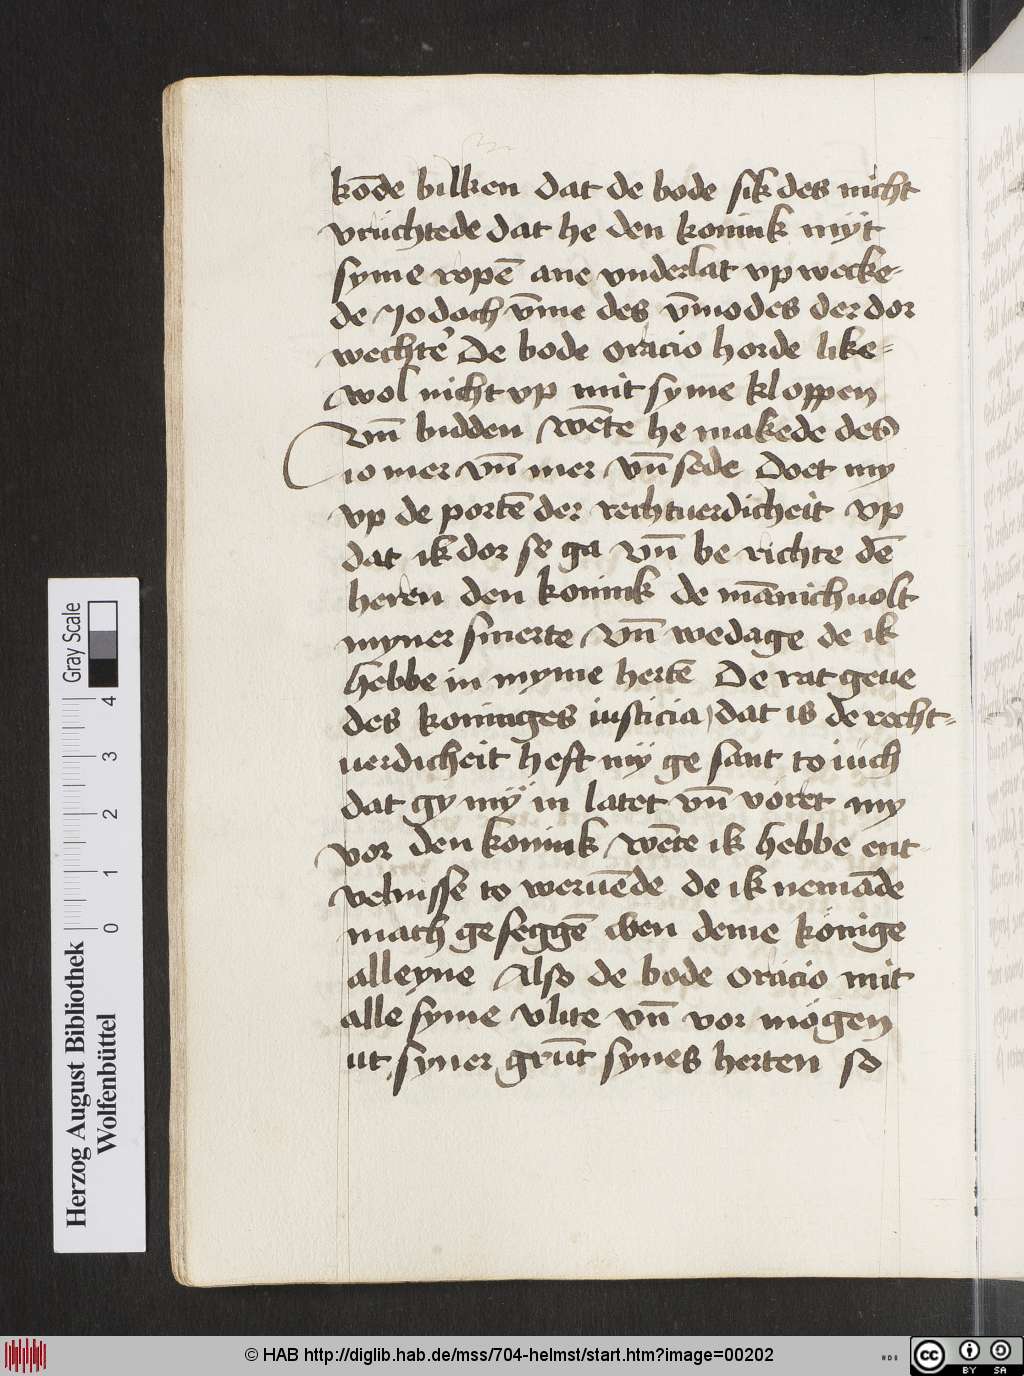 kōde bilken dat de bode sik des nicht
vrüchtede dat he den konink myt
syme ropē ane vnderlat vp wecke-
de Jodoch vm̄e des vn̄modes der dor
wechte᷑ De bode oracio horde like-
wol nicht vp mit syme kloppen
vn̄ bidden wēte he makede des
io mer vn̄ mer vn̄ sede Doet my
vp de portē der rechtuerdicheit vp
dat ik dor se ga vn̄ be richte dē
heren den konink de mānichuolt
myner smerte vn̄ wedage de ik
hebbe in myme hertē De rat geue
des koninges iusticia, dat is de recht-
uerdicheit heft mÿ ge sant to iüch
dat gy mÿ in latet vn̄ vöret my
vor den konink wēte ik hebbe ent
velnisse to weruēde de ik nemāde
mach ge seggē wen deme könige
alleyne Also de bode oracio mit
alle syme vlite vn̄ vor mögen
ut syner grūt synes herten so
Herzog August Bibliothek
Wolfenbüttel
0 1 2 3 4
Gray Scale
© HAB http://diglib.hab.de/mss/704-helmst/start.htm?image=00202
HAB
cc BY SA